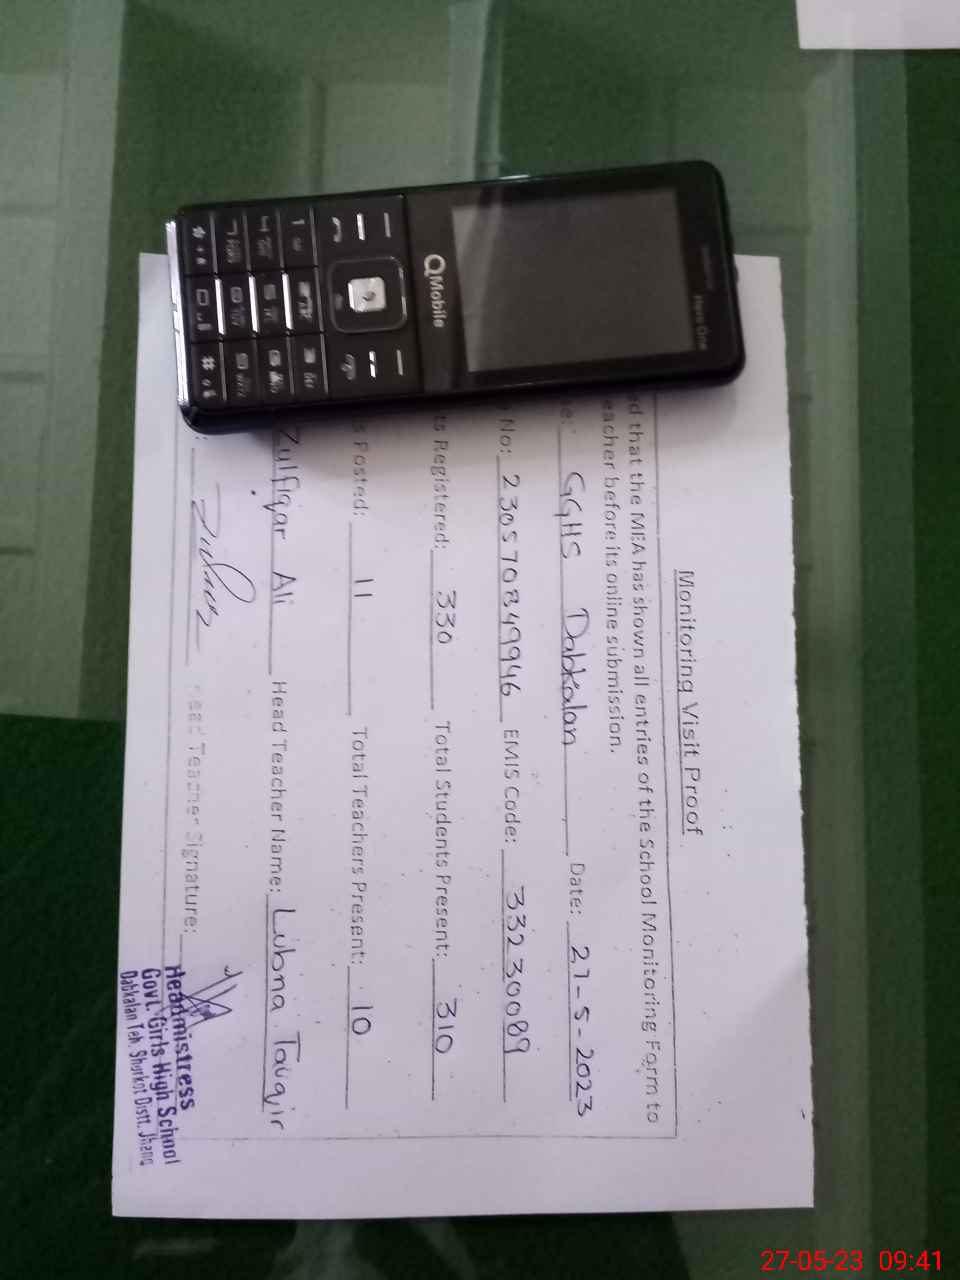 Monitoring Visit Proof
ed that the MEA has shown all entries of the School Monitoring Form to
eacher before its online submission.
GGHS Dabkalan Date: 27-5-2023
No: 2305708499946 EMIS Code: 33230089
ts Registered: 330 Total Students Present: 310
s Posted: 11 Total Teachers Present: 10
Zulfiqar Ali Head Teacher Name: Lubna Tauqir
Teacher Signature:
Headmistress
Govt. Girls High School
Dabkalan Teh. Shorkot Distt. Jhang
QMobile
27-05-23 09:41